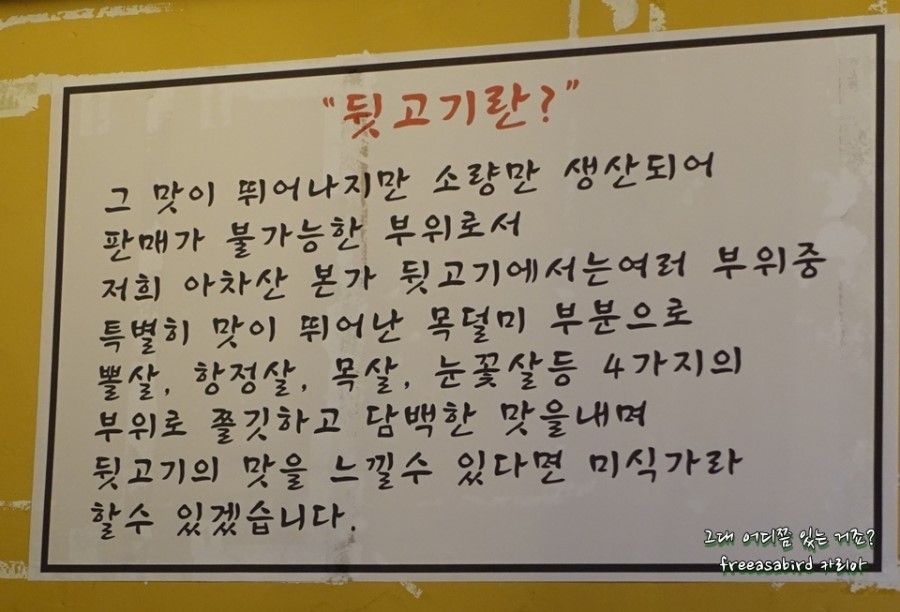 "뒷고기란?"
그 맛이 뛰어나지만 소량만 생산되어
판매가 불가능한 부위로서
저희 아차산 본가 뒷고기에서는여러 부위중
특별히 맛이 뛰어난 목덜미 부분으로
뽈살, 항정살, 목살, 눈꽃살등 4가지의
부위로 쫄깃하고 담백한 맛을내며
뒷고기의 맛을 느낄수 있다면 미식가라
할수 있겠습니다.
그대 어디쯤 있는 거죠?
freeasabird 카리아